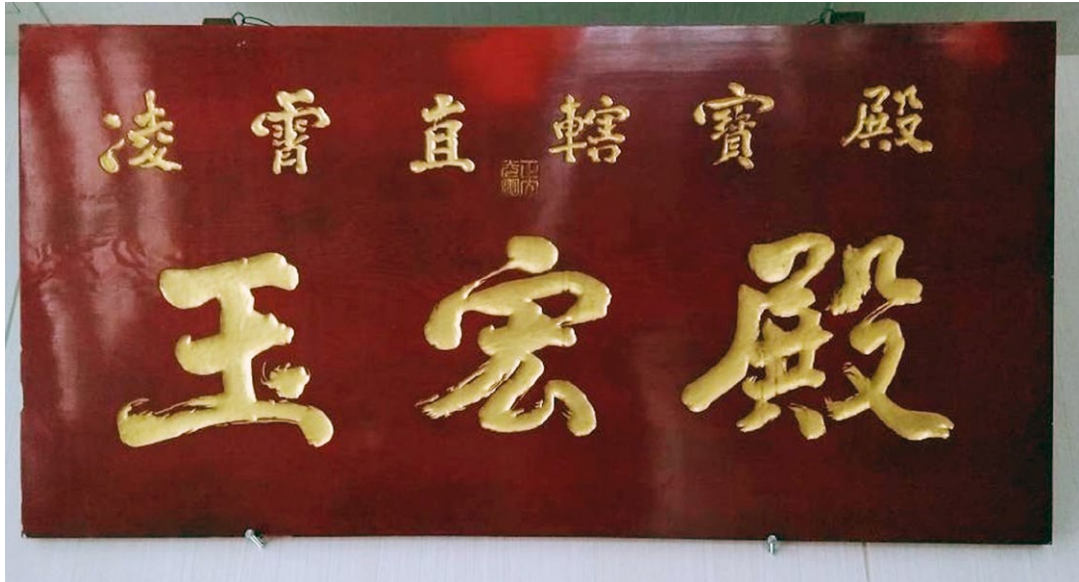 凌霄直轄寶殿
玉宏殿